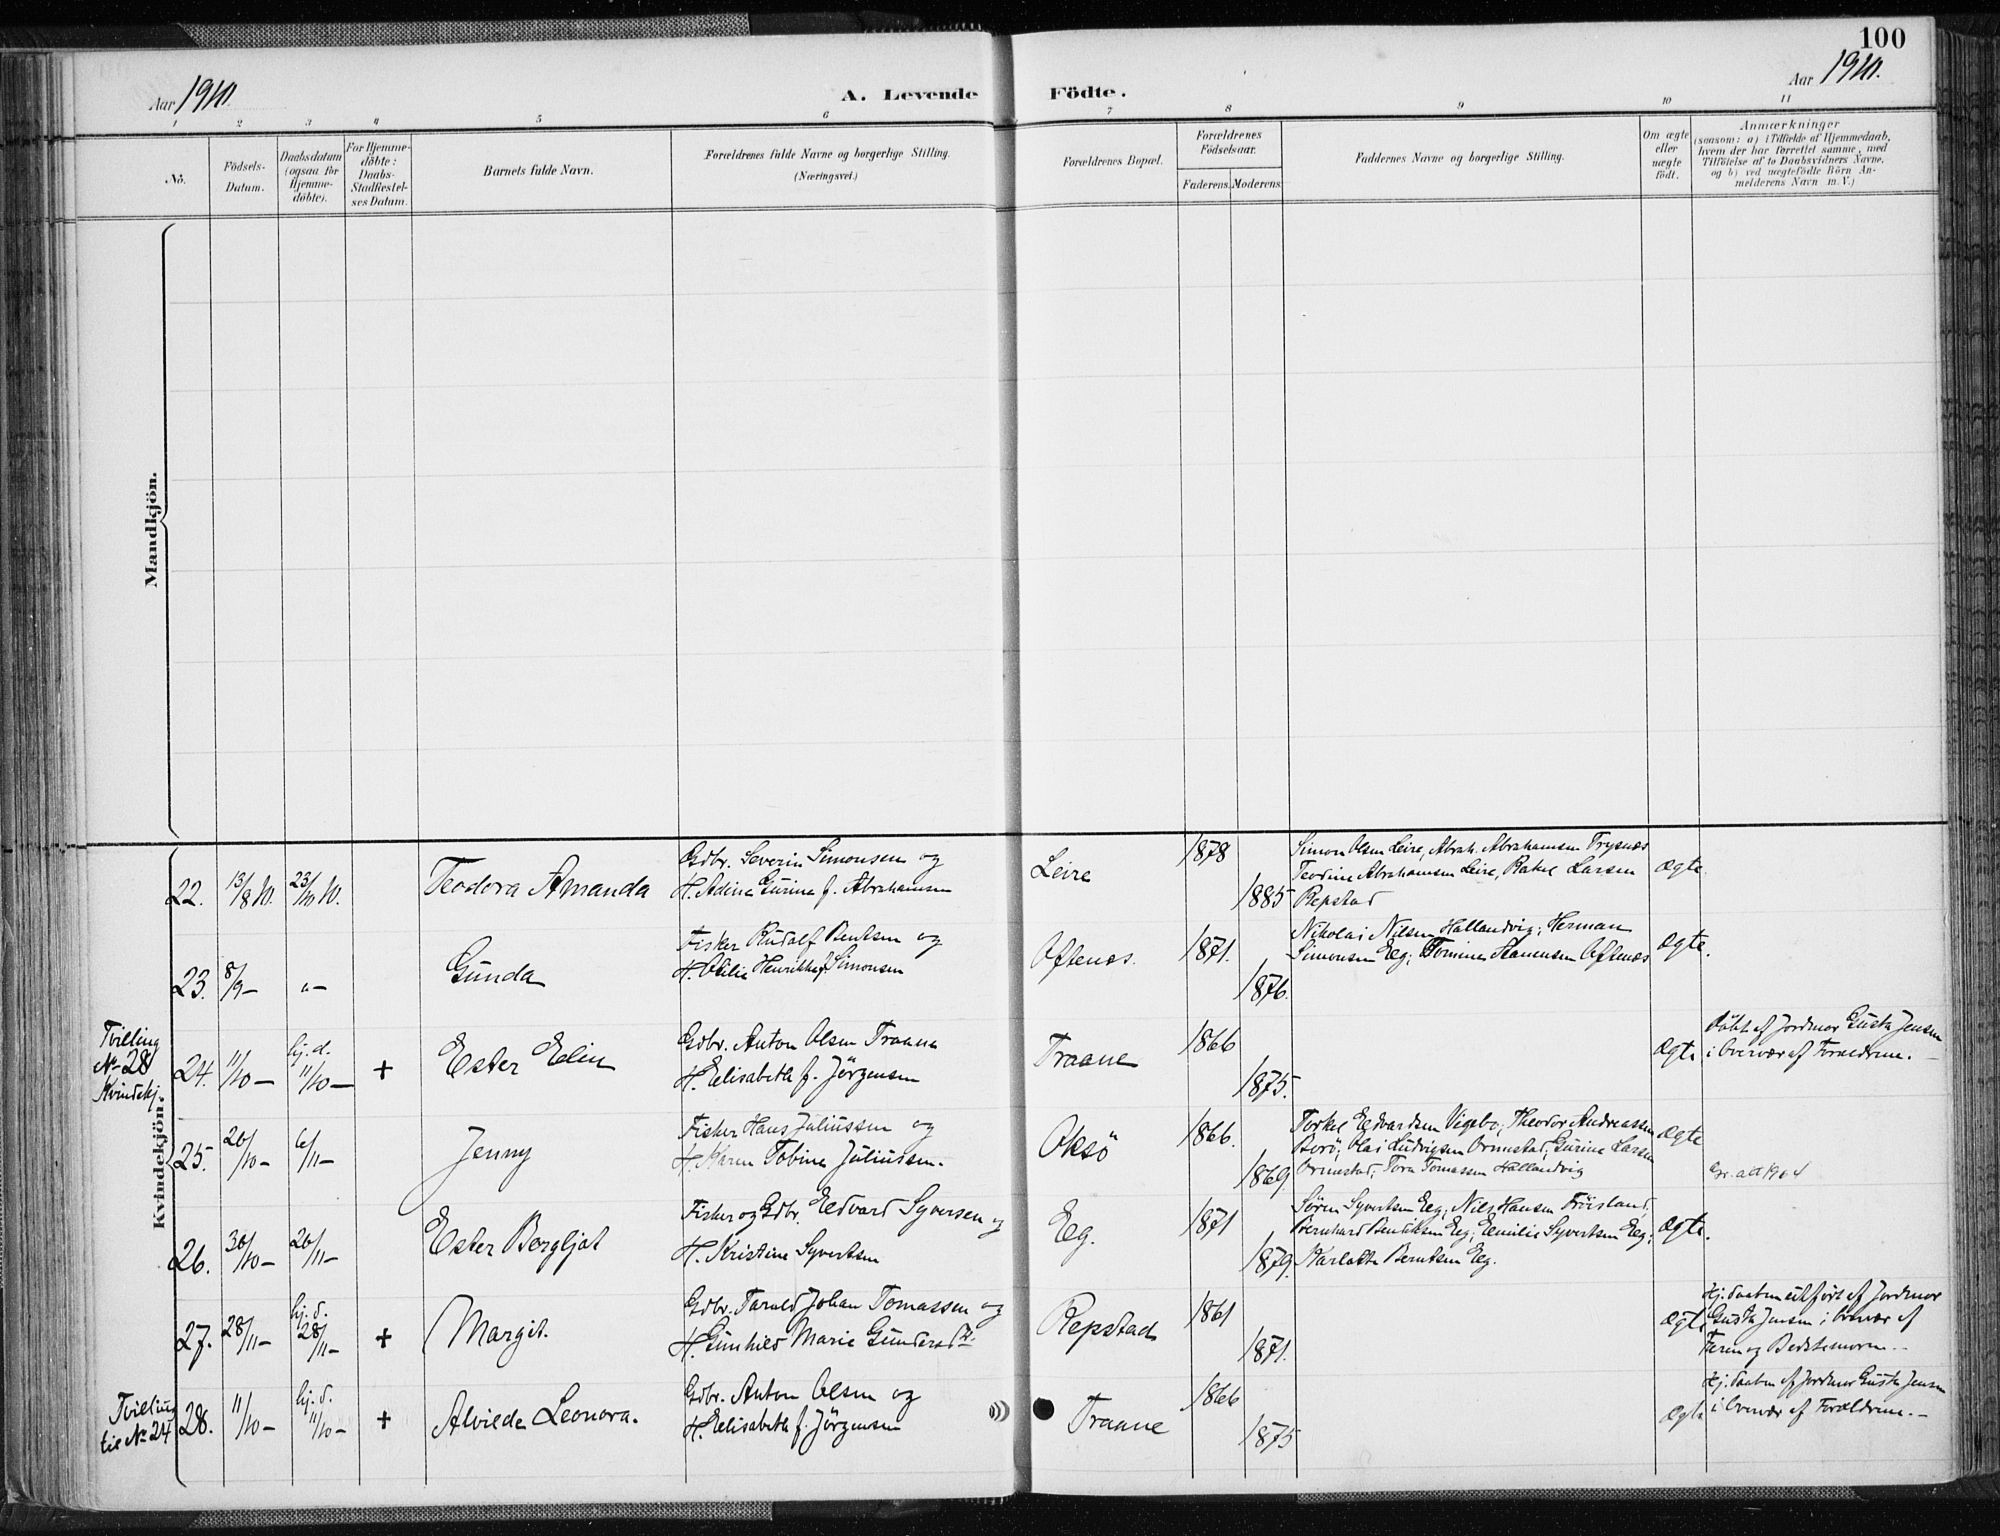 100
Aar 1910.
A. Levende Födte.
Aar 1910.
1 2 3 4 5 6 7 8 9 10 11
No.
Födsels-
Datum.
Daabsdatum
(ogsaa för
Hjemme-
döbte).
For Hjemme-
döbte:
Daabs-
Stadfæstel-
ses Datum.
Barnets fulde Navn.
Forældrenes fulde Navne og borgerlige Stilling.
(Næringsvei.)
Forældrenes Bopæl.
Forældrenes
Födselsaar.
Faderens. Moderens.
Faddernes Navne og borgerlige Stilling.
Om ægte
eller
uægte
födt.
Anmærkninger
(saasom: a) i Tilfælde af Hjemmedaab,
hvem der har forrettet samme, med
Tilföielse af to Daabsvidners Navne,
og b) ved uægtefödte Börn An-
melderens Navn m. V.)
Mandkjön.
Kvindekjön.
22. 13/8 10. 23/10 10. Teodora Amanda
Gdbr. Severin Simonsen og
H. Adine Gurine f. Abrahamsen
Leire 1878 1885
Simon Olsen Leire, Abrah. Abrahamsen Trysnæs
Teodine Abrahamsen Leire, Rakel Larsen
Repstad
Ægte.
23. 8/9 – „ – Gunda
Fisker Rudolf Bentsen og
H. Otilie Henrikke f. Simonsen
Oftenæs. 1871. 1876.
Nikolai Nilsen Hallandvig; Herman
Simonsen Eeg; Tomine Hansen Oftenæs
Ægte.
Tvilling
No 28
Kvindekj.
24. 11/10 – hj. d. 11/10 – + Ester Elin
Gdbr. Anton Olsen Traane
H. Elisabeth f. Jörgensen
Traane 1866 1875.
Ægte
Döbt af Jordmor Gusta Jensen
i Overvær af Forældrene. –
25. 20/10 – 6/11 – Jenny
Fisker Hans Juliussen og
H. Karen Tobine Juliussen.
Oksö 1866. 1869.
Torkel Edvardsen Vigebo, Theodor Andreassen
Borö; Olai Ludvigsen Ormestad, Gurine Larsen
Ormestad, Tora Tomassen Hallandvig
Ægte
26. 30/10 – 20/11 – Ester Bergljot
Fisker og Gdbr. Edvard Syversen og
H. Kristine Syvertsen
Eg. 1871 1879.
Sören Syvertsen Eeg, Nils Hansen Fröisland,
Bernhard Bentsen Eeg; Emilie Syvertsen Eeg;
Karlotte Berntsen Eeg.
Ægte.
27. 28/11 – hj. d. 28/11 – + Margit.
Gdbr. Tarald Johan Tomassen og
H. Gunhild Marie Gundersdtr.
Repstad 1861 1871.
Ægte
Hj. daaben udfört af Jordmor
Gusta Jensen i Overvær af
Faren og Bedstemoren. –
Tvilling
til No 24
28. 11/10 – hj. d. 11/10 – + Alvilde Leonora.
Gdbr. Anton Olsen og
H. Elisabeth f. Jörgensen
Traane 1866 1875
Ægte
Hj. daaben af Jordmor Gusta Jensen
i Overvær af Forældrene. –